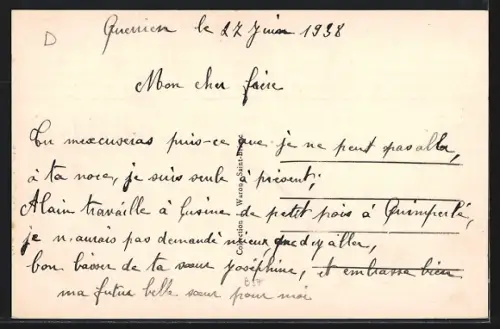 D
Querrien le 27 Juin 1938
Mon cher frère
Tu mexcuseras puis-ce que je ne peut pas aller,
à ta noce, je suis seule à présent;
Alain travaille à lusine de petit pois à Quimperlé,
je n'aurais pas demandé mieux que d'y aller,
bon baiser de ta sœur Joséphine, et embrasse bien
ma futur belle sœur pour moi
Collection Waron, Saint-Brieuc